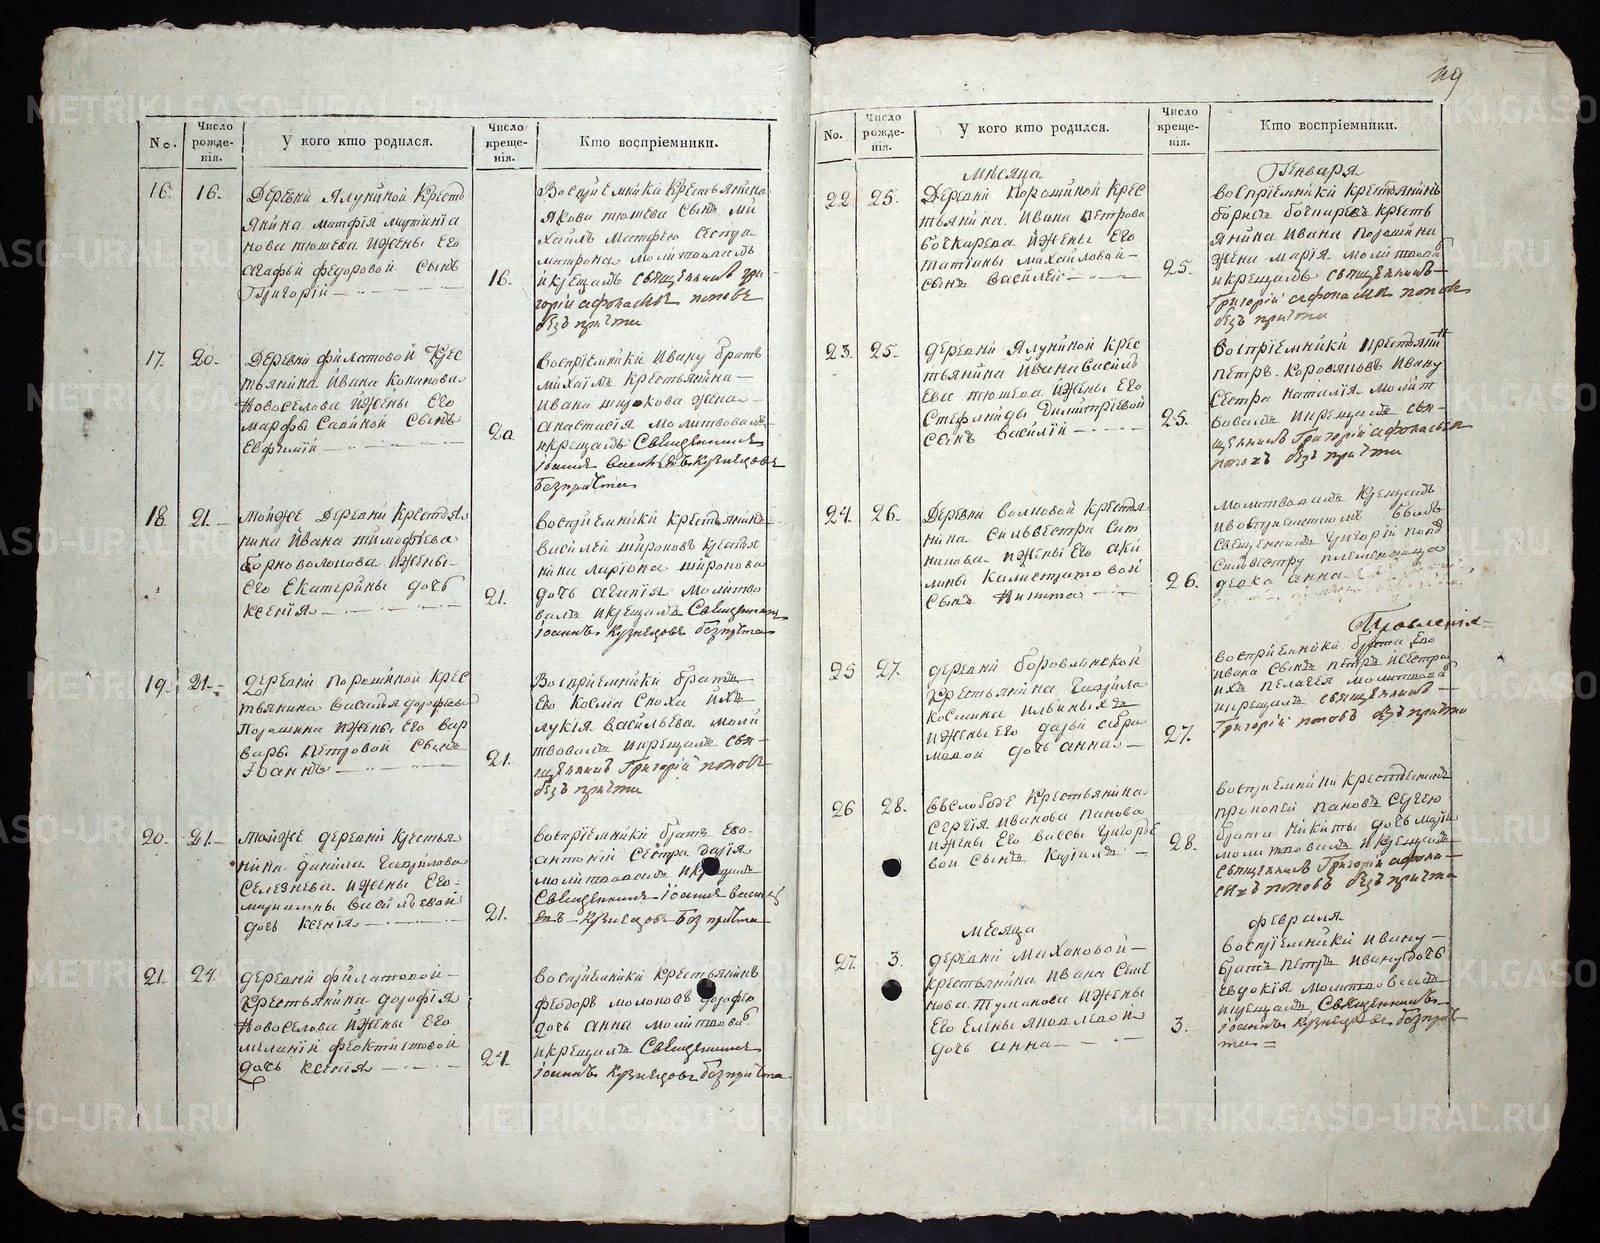 119
No.
Число рожде-нія.
У кого кто родился.
Число креще-нія.
Кто воспріемники.
16.
16.
Деревни Ялуниной Кресть
янина Матфія
нова тюшева ижены Его
агафьи федоровой сынъ
Григорій
16.
Воспріемники Крестьянина
Якова тюшева сынъ ми
хаилъ Матфею сестра
матрона молитвовалъ
икрещалъ священникъ гри
горій афонасьевъ поповъ
безъ причта
17.
20.
Деревни филатовой Крес
тьянина Ивана
Новоселова ижены Его
марфы Савиной сынъ
Евфимій
20
воспріемники Ивану братъ
михаилъ Крестьянина
Ивана широкова жена
анастасія молитвовалъ
икрещалъ Священникъ
іоаннъ Кузнецовъ
безпричта
18.
21.
тойже Деревни Крестья
нина Ивана тимофѣева
Черноволокова ижены
Его Екатерины дочь
ксенія
21.
воспріемники крестьянина
василей широковъ крестья
нина ларіона широкова
дочь агапія молитво
валъ икрещалъ Священникъ
іоаннъ Кузнецовъ безпричта
19.
21.
деревни порошиной крес
тьянина василья дорофеева
Порошина ижены Его вар
вары Петровой сынъ
Іоаннъ
21.
Воспріемники братъ
Его Косма Сноха ихъ
лукія васильева моли
твовалъ икрещалъ свя
щенникъ Григорій поповъ
безъ причта
20.
21.
тойже деревни крестья
нина данила гаврилова
Селезнева ижены Его
васильевой
дочь ксенія
21.
воспріемники братъ Его
антоній сестра дарія
молитвовалъ икрещалъ
Священникъ іоаннъ васильевъ
Кузнецовъ безпричта
21.
24.
деревни филатовой
крестьянина дорофія
Новоселова ижены Его
меланіи феоктистовой
дочь ксенія
24.
воспріемники крестьянинъ
феодоръ молоковъ дорофею
дочь анна молитвовалъ
икрещалъ Священникъ
іоаннъ Кузнецовъ безпричта
No.
Число рожде-нія.
У кого кто родился.
Число креще-нія.
Кто воспріемники.
Месяца
Генваря
22
25.
Деревни Порошиной Крес
тьянина Ивана петрова
бочкарева ижены Его
татіаны михайловой
сынъ василей
25.
воспріемники крестьянинъ
борисъ бочкаревъ кресть
янина Ивана порошина
жена марія молитвовалъ
икрещалъ священникъ
Григорій афонасьевъ поповъ
безъ причта
23.
25.
деревни Ялуниной крес
тьянина Ивана василь
ева тюшева ижены Его
Стефаниды димитріевой
сынъ василій
25.
воспріемники крестьянинъ
Петръ Коровяковъ Ивану
сестра наталія молит
вовалъ икрещалъ свя
щенникъ Григорій афонасьевъ
поповъ безъ причта
24.
26.
Деревни волковой крестья
нина сильвестра сит
никова ижены Его аки
лины калистратовой
сынъ Никита
26.
молитвовалъ крещалъ
ивоспріемникомъ былъ
священникъ григорій поповъ
силвестру племенница
девка анна
25
27.
деревни боровлянской
крестьянина гаврила
космина ильиныхъ
ижены Его дарьи абра
мовой дочь анна
27.
воспріемники брата Его
Ивана сынъ петръ исестра
ихъ пелагея молитвовалъ
икрещалъ священникъ
Григорій поповъ безъ причта
26
28.
въслободе крестьянина
сергія иванова панова
ижены Его вассы григорье
вой сынъ Кирилъ
28.
воспріемники крестьянинъ
прокопей пановъ сергею
брата никиты дочь марія
молитвовалъ икрещалъ
священникъ Григорій афона
сьевъ поповъ безъ причта
месяца
февраля
27.
3.
деревни Махоновой
крестьянина Ивана семе
нова туманова ижены
Его Елены яковлевой
дочь анна
3.
воспріемники ивану
братъ петръ ивану дочь
евдокія молитвовалъ
икрещалъ Священникъ
іоаннъ Кузнецовъ безприч
та